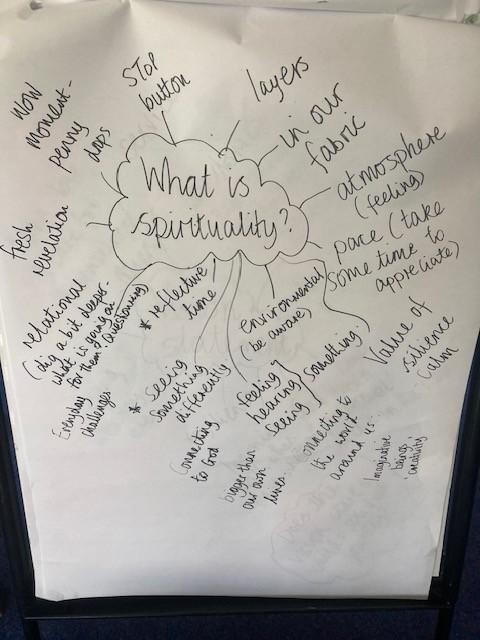 What is
spirituality?
STOP
button
layers
in our
fabric
atmosphere
(feeling)
pace (take
some time to
appreciate)
Value of
silience
calm
something.
environmental
(be aware)
feeling
hearing
seeing
connecting to
the world
around us..
Imaginative
beings.
creativity
bigger than
our own
lives..
Connecting
to God
* reflective
time
* seeing
something
differently
relational
(dig a bit deeper-
what is going on
for them (questioning)
Everyday
challenges
fresh
revelation
Wow
moment-
penny
drops